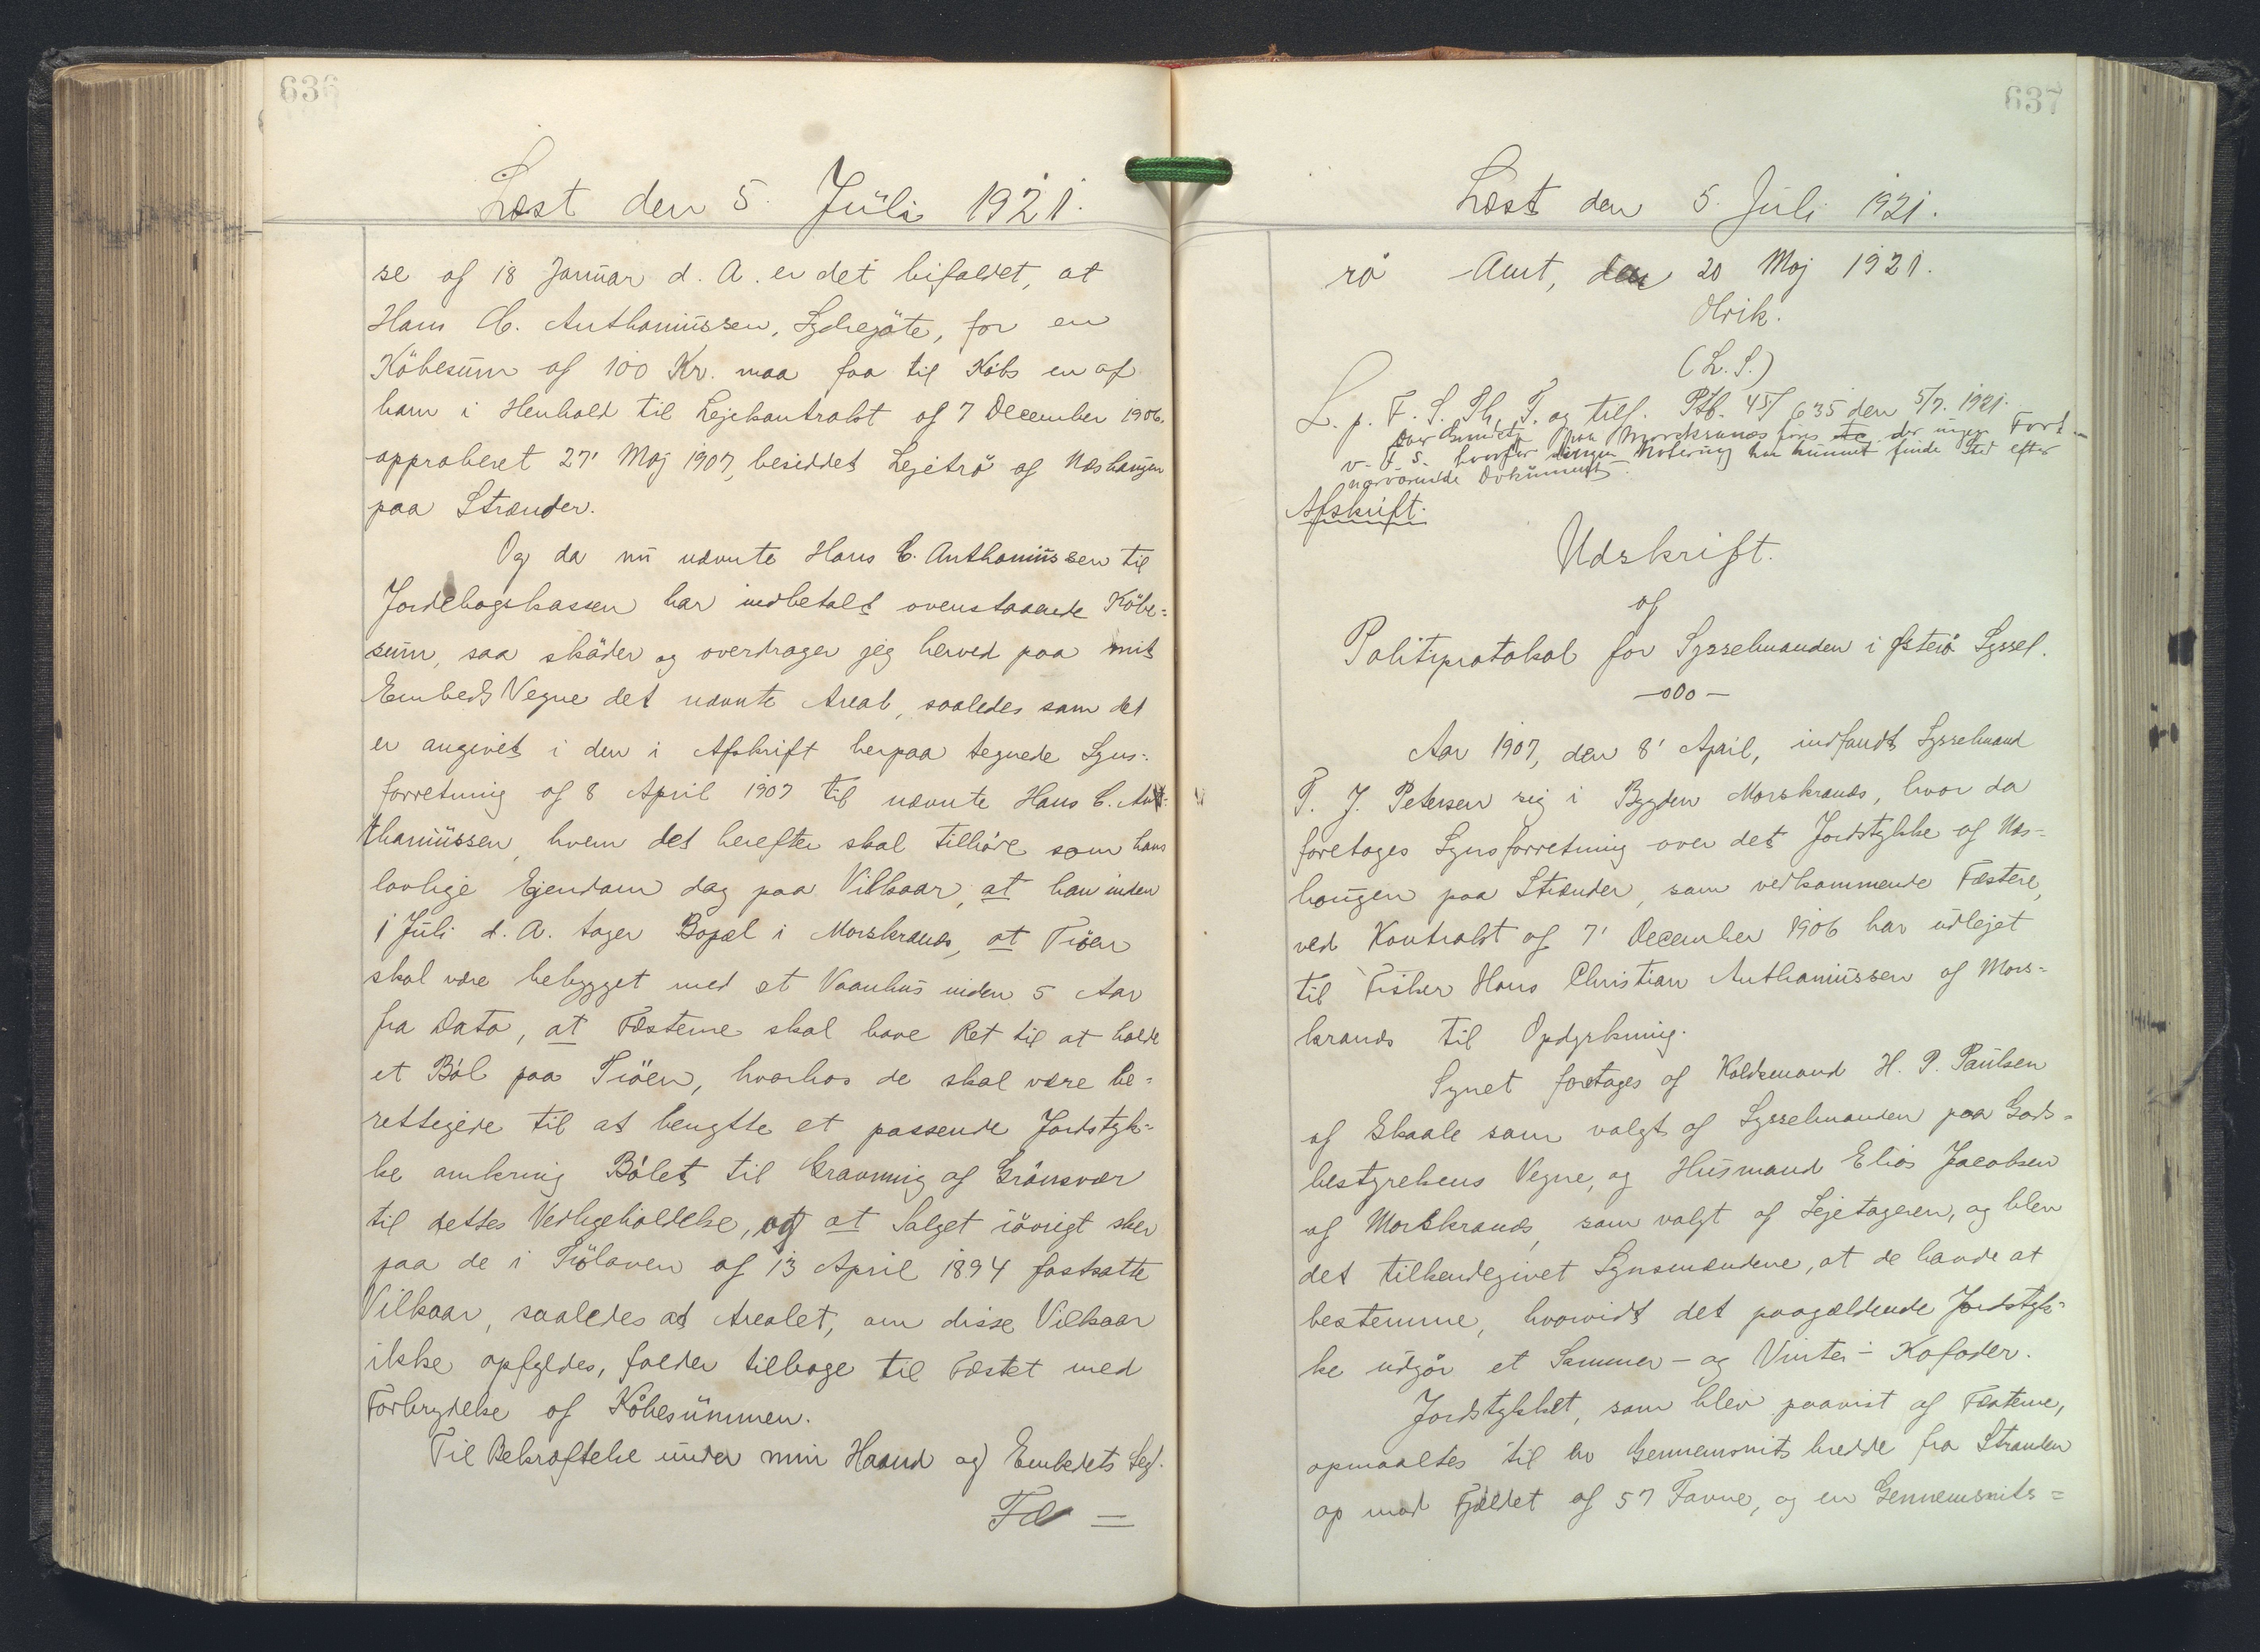 636
Læst den 5. Juli 1921.
se af 18 Januar d. A. er det bifaldet, at
Hans C. Anthoniussen, Sydregøte, for en
Købesum af 100 Kr. maa faa til Købs en af
ham i Henhold til Lejekontrakt af 7 December 1906,
approberet 27' Maj 1907, besiddet Lejetrø af Næshaugen
paa Strænder.
Og da nu nævnte Hans C. Anthoniussen til
Jordebogskassen har indbetalt ovenstaaende Købe=
sum, saa skøder og overdrager jeg herved paa mit
Embeds Vegne det nævnte Areal, saaledes som det
er angivet i den i Afskrift herpaa tegnede Syns=
forretning af 8 April 1907 til nævnte Hans C. An=
thoniussen, hvem det herefter skal tilhøre som hans
lovlige Ejendom dog paa Vilkaar, at han inden
1 Juli d. A. tager Bopæl i Morskranes, at Trøen
skal være bebygget med et Vaanhus inden 5 Aar
fra Dato, at Fæsterne skal have Ret til at holde
et Ból paa Trøen, hvorhos de skal være be=
rettigede til at benytte et passende Jordstyk=
ke omkring Bólet til Gravning af Grønsvær
til dettes Vedligeholdelse, og at Salget iøvrigt sker
paa de i Trøloven af 13 April 1894 fastsatte
Vilkaar, saaledes at Arealet, om disse Vilkaar
ikke opfyldes, falder tilbage til Fæstet med
Forbrydelse af Købesummen.
Til Bekræftelse under min Haand og Embedets Segl.
Fæ =
637
Læst den 5. Juli 1921.
rø Amt, den 20 Maj 1921.
Olrik.
(L. S.)
L. p. F. S. Th. T. og tilf. Ptb. 45/635 den 5/7. 1921.
paa Morskranes fins der ingen Fort-
v. F. S. hvorfor ingen Notering har kunnet finde Sted efter
nærværende Dokument.
Afskrift.
Udskrift.
af
Politiprotokol for Sysselmanden i Østerø Syssel.
-o0o-
Aar 1907, den 8' April, indfandt Sysselmand
P. J. Petersen sig i Bygden Morskranes, hvor da
foretages Synsforretning over det Jordstykke af Næs=
haugen paa Strænder, som vedkommende Fæstere,
ved Kontrakt af 7' December 1906 har udlejet
til Fisker Hans Christian Anthoniussen af Mors=
kranes til Opdyrkning.
Synet foretages af Koldsmand H. P. Paulsen
af Skaale som valgt af Sysselmanden paa Gods=
bestyrelsens Vegne, og Husmand Elias Jacobsen
af Morskranes, som valgt af Lejetageren, og blev
det tilkendegivet Synsmændene, at de havde at
bestemme, hvorvidt det paagældende Jordstyk=
ke udgør et Sommer- og Vinter- Kofoder.
Jordstykket, som blev paavist af Fæsterne,
opmaaltes til en Gennemsnits bredde fra Stranden
op mod Fjældet af 57 Favne, og en Gennemsnits=